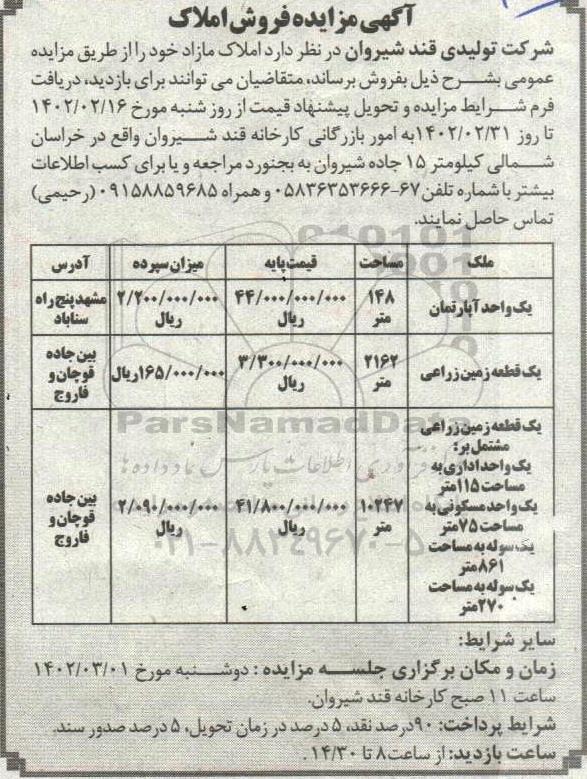 آگهی مزایده فروش املاک
شرکت تولیدی قند شیروان در نظر دارد املاک مازاد خود را از طریق مزایده
عمومی بشرح ذیل بفروش برساند، متقاضیان می توانند برای بازدید، دریافت
فرم شرایط مزایده و تحویل پیشنهاد قیمت از روز شنبه مورخ ۱۴۰۲/۰۲/۱۶
تا روز ۱۴۰۲/۰۲/۳۱ به امور بازرگانی کارخانه قند شیروان واقع در خراسان
شمالی کیلومتر ۱۵ جاده شیروان به بجنورد مراجعه و یا برای کسب اطلاعات
بیشتر با شماره تلفن ۶۷-۰۵۸۳۶۳۵۳۶۶۶ و همراه ۰۹۱۵۸۸۵۹۶۸۵ (رحیمی)
تماس حاصل نمایند.
ملک مساحت قیمت پایه میزان سپرده آدرس
یک واحد آپارتمان ۱۴۸ متر ۴۴/۰۰۰/۰۰۰/۰۰۰ ریال ۲/۲۰۰/۰۰۰/۰۰۰ ریال مشهد پنج راه سناباد
یک قطعه زمین زراعی ۲۱۶۲ متر ۳/۳۰۰/۰۰۰/۰۰۰ ریال ۱۶۵/۰۰۰/۰۰۰ ریال بین جاده قوچان و فاروج
یک قطعه زمین زراعی
مشتمل بر:
یک واحد اداری به
مساحت ۱۱۵ متر
یک واحد مسکونی به
مساحت ۷۵ متر
یک سوله به مساحت
۸۶۱ متر
یک سوله به مساحت
۲۷۰ متر
۱۰۲۴۷ متر ۴۱/۸۰۰/۰۰۰/۰۰۰ ریال ۲/۰۹۰/۰۰۰/۰۰۰ ریال بین جاده قوچان و فاروج
ParsNamadData
۰۲۱-۸۸۳۴۹۶۷۰-۵
سایر شرایط:
زمان و مکان برگزاری جلسه مزایده : دوشنبه مورخ ۱۴۰۲/۰۳/۰۱
ساعت ۱۱ صبح کارخانه قند شیروان.
شرایط پرداخت: ۹۰ درصد نقد، ۵ درصد در زمان تحویل، ۵ درصد صدور سند.
ساعت بازدید: از ساعت ۸ تا ۱۴/۳۰ .